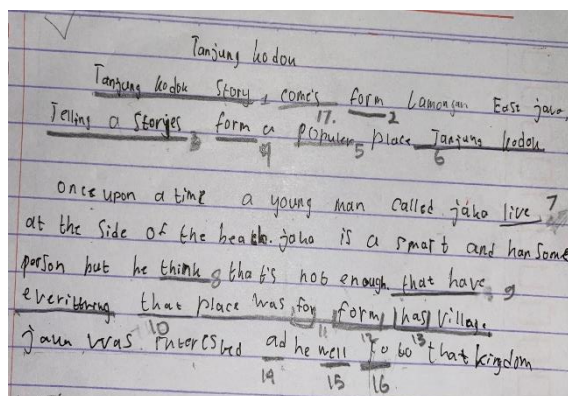 Tanjung kodok
Tanjung kodok Story 1 come's form Lamongan East java,
17. 2
Telling a Storyes 3 form a populer place Tanjung kodok
4 5 6
Once upon a time a young man called jaka live 7
at the side of the beach. jaka is a smart and hansome
person but he think 8 that's not enough that have 9
everithing that place was for form has village.
10 11 12 13
jaka was interested ad he well to to that kingdom
14 15 16